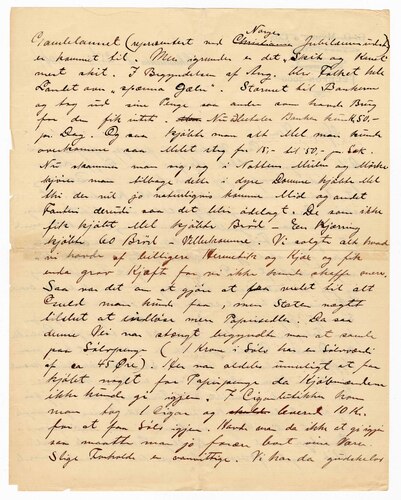 Gamlelandet (representert ved Norges Jubilæumsudst
er kommet til. Men igrunden er det Skidt og Kanel
mest skit. I Begyndelsen af Aug. blev Folket hele
Landet om "spænna Galen". Stormet til Bankerne
og tog ud sine Penge som andre som havde Brug
for den fik intet. Nu Udbetaler Banken kun 50.-
pr Dag. Og saa kjøbte man alt Mel man kunde
overkomme saa Melet steg fra 15,- til 50,- pr Sæk.
Nu skammer man sig, og i Nattens Mulm og Mørke
kjører man tilbage dette i dyre Domme kjøbte Mel
thi der vil jo naturligvis komme Mid og andet
Fanteri deruti saa det blir ødelagt. De som ikke
fik kjøbt Mel kjøbte Brød – Een Kjærring
kjøbte 60 Brød – Vellekomne. Vi solgte alt hvad
vi havde af billigere Hermetik og Kjæx og fik
enda grov Kjæft for vi ikke kunde skaffe mere.
Saa var det om at gjøre at faa vexlet til alt
Guld man kunde faa, men Staten nægtet
tillikket at indløse men Papirsedler. Da saa
denne Vei var stængt begyndte man at samle
paa Sølvpenge (1 Krone i Sølv har en Sølvværdi
af ca 45 Øre). Her var aldeles umuligt at faa
kjøbt noget for Papirpenge da Kjøbmændene
ikke kunde gi igjen. I Cigarbutikker kom
man tog 1 Cigar og leverte 10 Kr.
for at faa Sølv igjen. Kunde saa de ikke at gi igjen
saa maatte man jo forære bort sine Varer.
Slige Forholde er vanvittige. Vi har da gudskelov